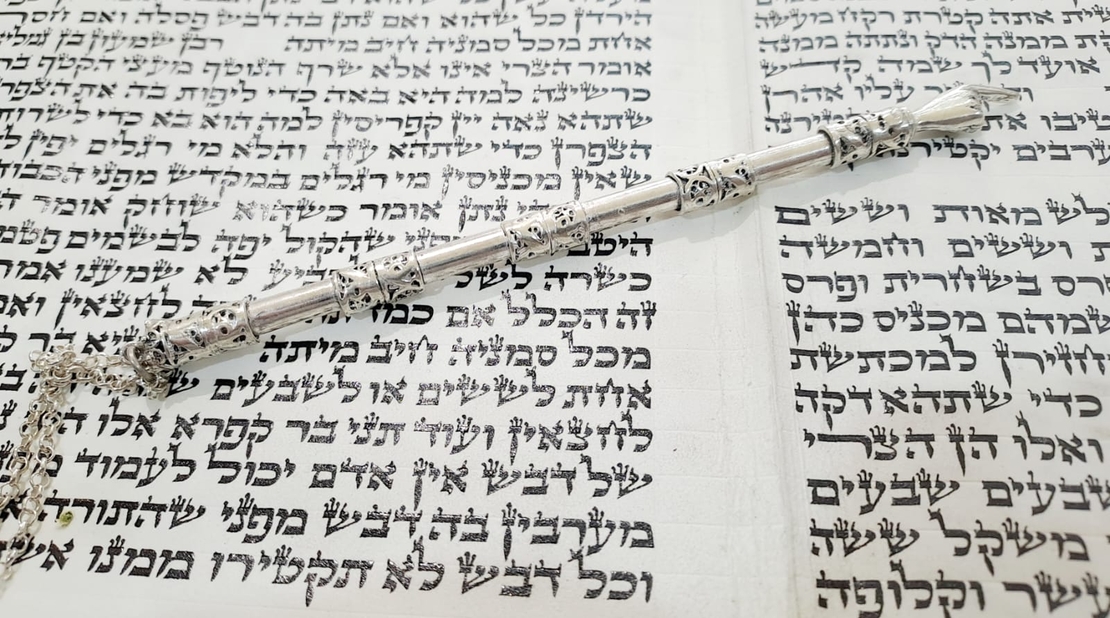 אתה קטרת רקוח מעשה
ממנה הדק ונתתה ממנה
אועד לך שמה קדש
עליו אהרן
את
יקטירנה
מאות וששים
וששים וחמשה
בשחרית ופרס
שמהם מכניס כהן
למכתשת
כדי שתהא דקה
ואלו הן הצרי
שבעים שבעים
משקל ששה
עשר וקלופה
הירדן כל שהוא ואם נתן בה דבש פסלה ואם חסר
אחת מכל סמניה חיב מיתה רבן שמעון בן גמליאל
אומר הצרי אינו אלא שרף הנוטף מעצי הקטף
כרשינה למה היא באה כדי ליפות בה את הצפרן
שתהא נאה יין קפריסין למה הוא בא כדי לשרות
הצפרן כדי שתהא עזה והלא מי רגלים יפין
שאין מכניסין מי רגלים במקדש מפני הכבוד
נתן אומר כשהוא שוחק אומר
שהקול יפה לבשמים
כשרה לא שמענו אמר
זה הכלל אם לחצאין ואם
מכל סמניה חיב מיתה בר
אחת לששים או לשבעים
לחצאין ועוד תני בר קפרא אלו
של דבש אין אדם יכול לעמוד
מערבין בה דבש מפני שהתורה
וכל דבש לא תקטירו ממנו